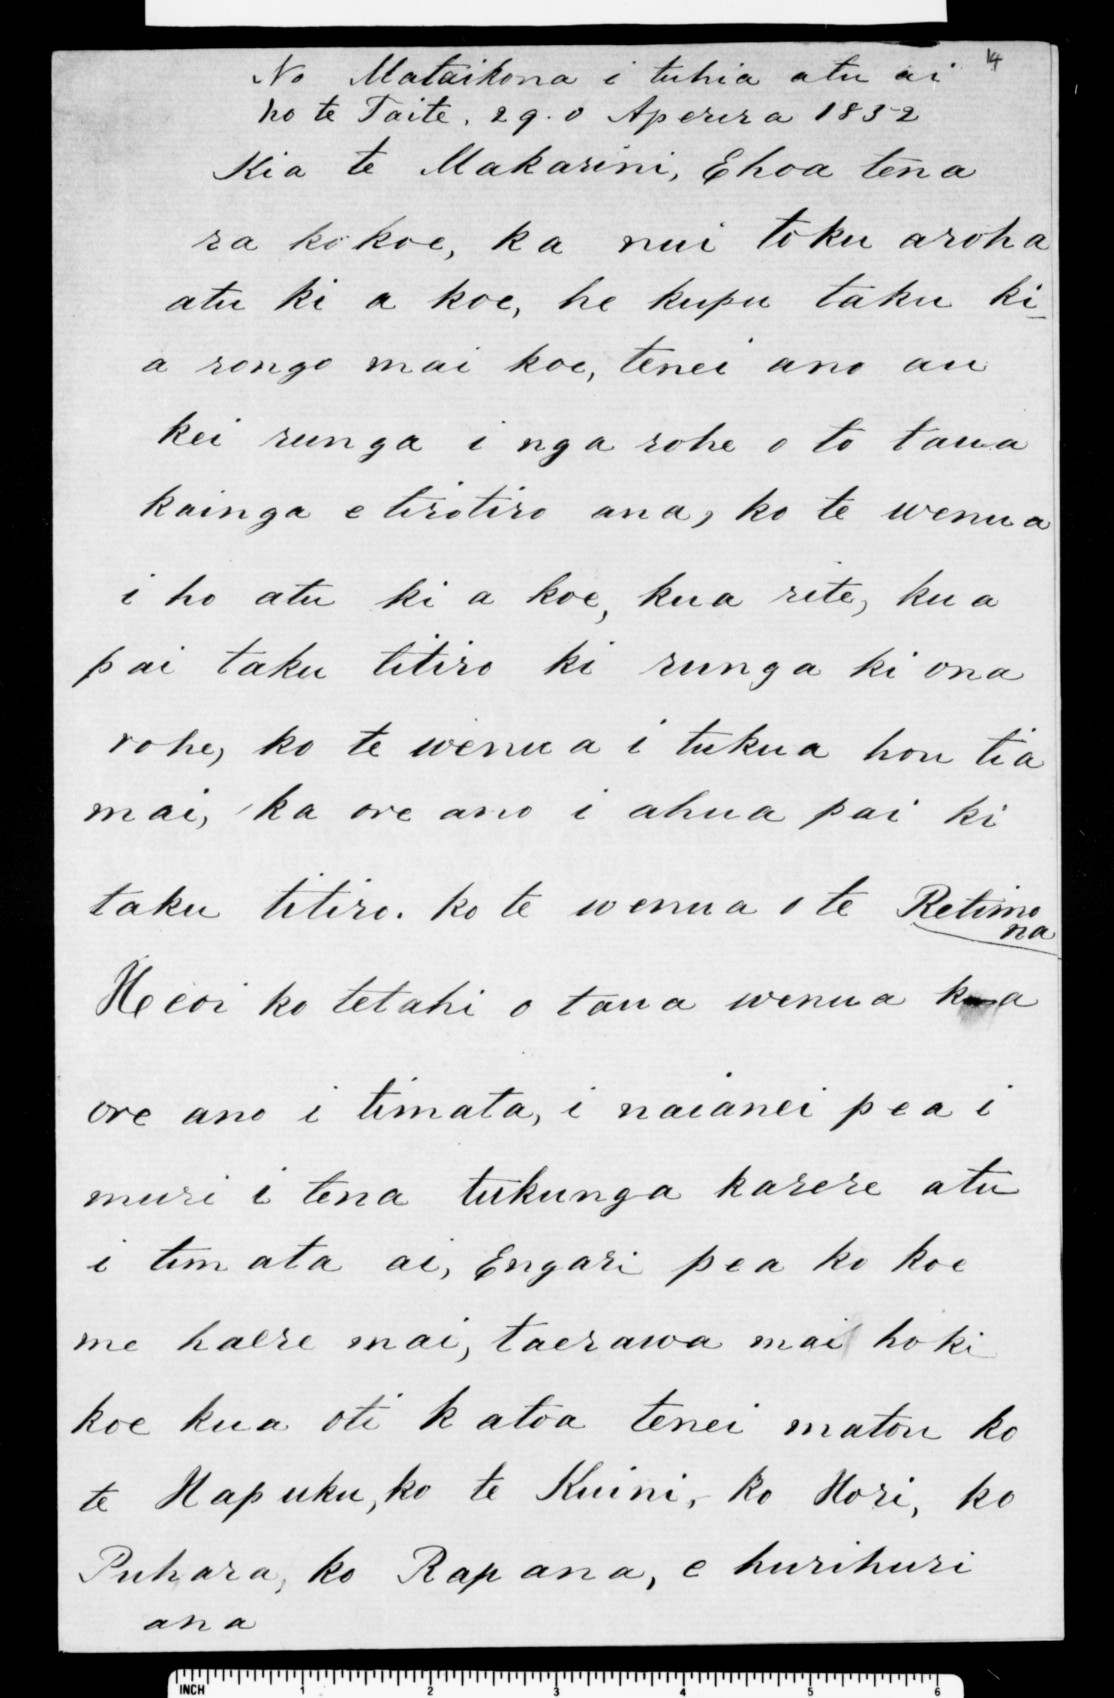 14
No Mataikona i tuhia atu ai
ho te Taite. 29. o Aperira 1852
Kia te Makarini, Ehoa tena
ra ko koe, ka nui toku aroha
atu ki a koe, he kupu taku ki-
a rongo mai koe, tenei ano au
kei runga i nga rohe o to taua
kainga e tirotiro ana, ko te wenua
i ho atu ki a koe, kua rite, kua
pai taku titiro ki runga ki ona
rohe, ko te wenua i tukua hou tia
mai, ka ore ano i ahua pai ki
taku titiro. ko te wenua o te Retimo
na
Heoi ko tetahi o taua wenua ka
ore ano i timata, i naianei pea i
muri i tena tukunga karere atu
i timata ai, Engari pea ko koe
me haere mai, taerawa mai hoki
koe kua oti katoa tenei matou ko
te Hapuku, ko te Kuini, ko Hori, ko
Puhara, ko Rapana, e hurihuri
ana
INCH 1 2 3 4 5 6